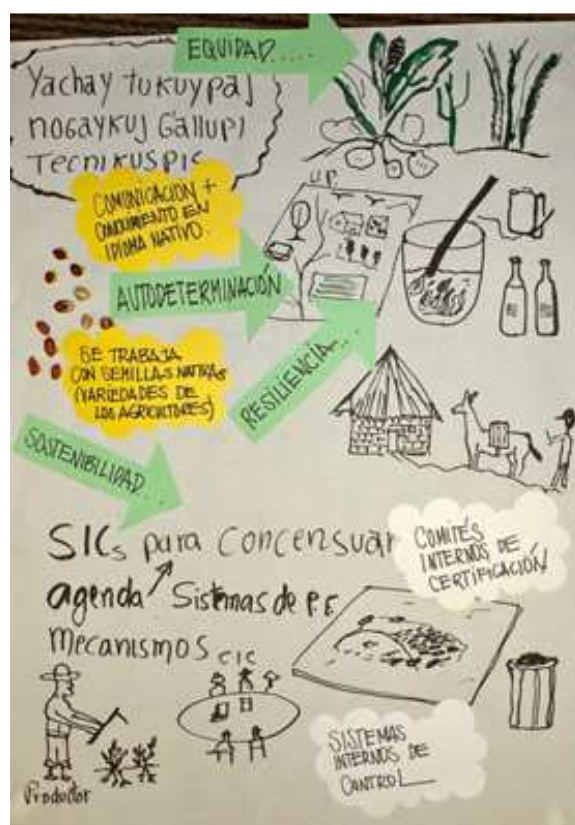 EQUIDAD.....
Yachay tukuypaj
nogaykuj Gallupi
Tecnikuspic
COMUNICACIÓN +
CONOCIMIENTO EN
IDIOMA NATIVO.
U.P.
AUTODETERMINACIÓN
SE TRABAJA
CON SEMILLAS NATIVAS
(VARIEDADES DE
LOS AGRICULTORES)
RESILIENCIA...
SOSTENIBILIDAD...
SICs para concensuar
agenda Sistemas de P.E
mecanismos
CIC
COMITÉS
INTERNOS DE
CERTIFICACIÓN
SISTEMAS
INTERNOS DE
CONTROL
Productor